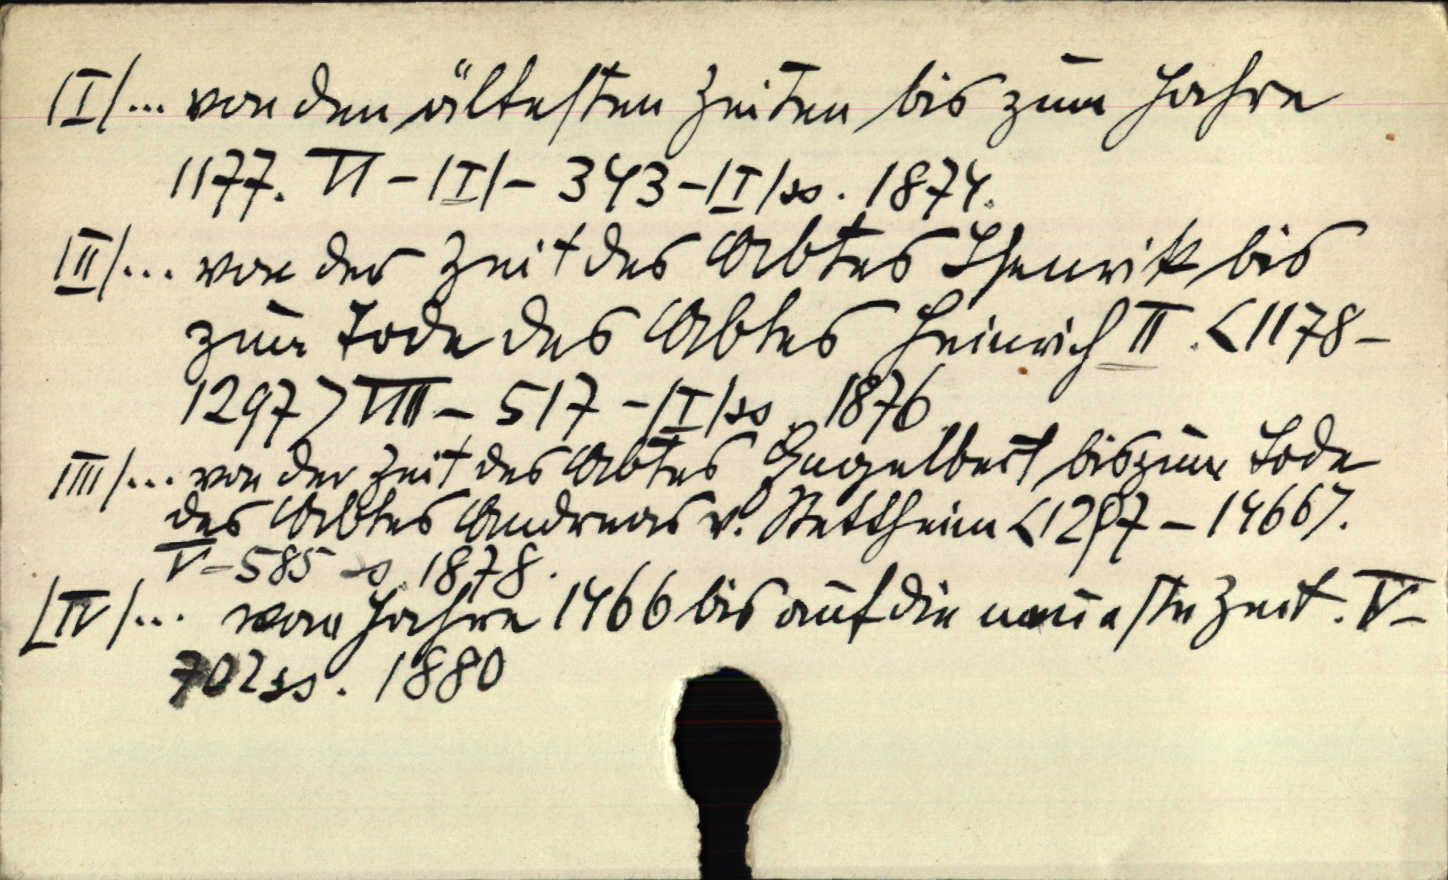 /I/... von den ältesten Zeiten bis zum Jahre
1177. VI – /I/ – 343 – /I/ ss. 1874.
/II/... von der Zeit des Abtes Isenrik bis
zum Tode des Abtes Heinrich II. <1178 –
1297> VIII – 517 – /I/ ss. 1876
III/... von der Zeit des Abtes Engelbert bis zum Tode
des Abtes Andreas v. Stettheim <1297 – 1466>.
V – 585 s. 1878.
/IV/... vom Jahre 1466 bis auf die neueste Zeit. V –
702 ss. 1880